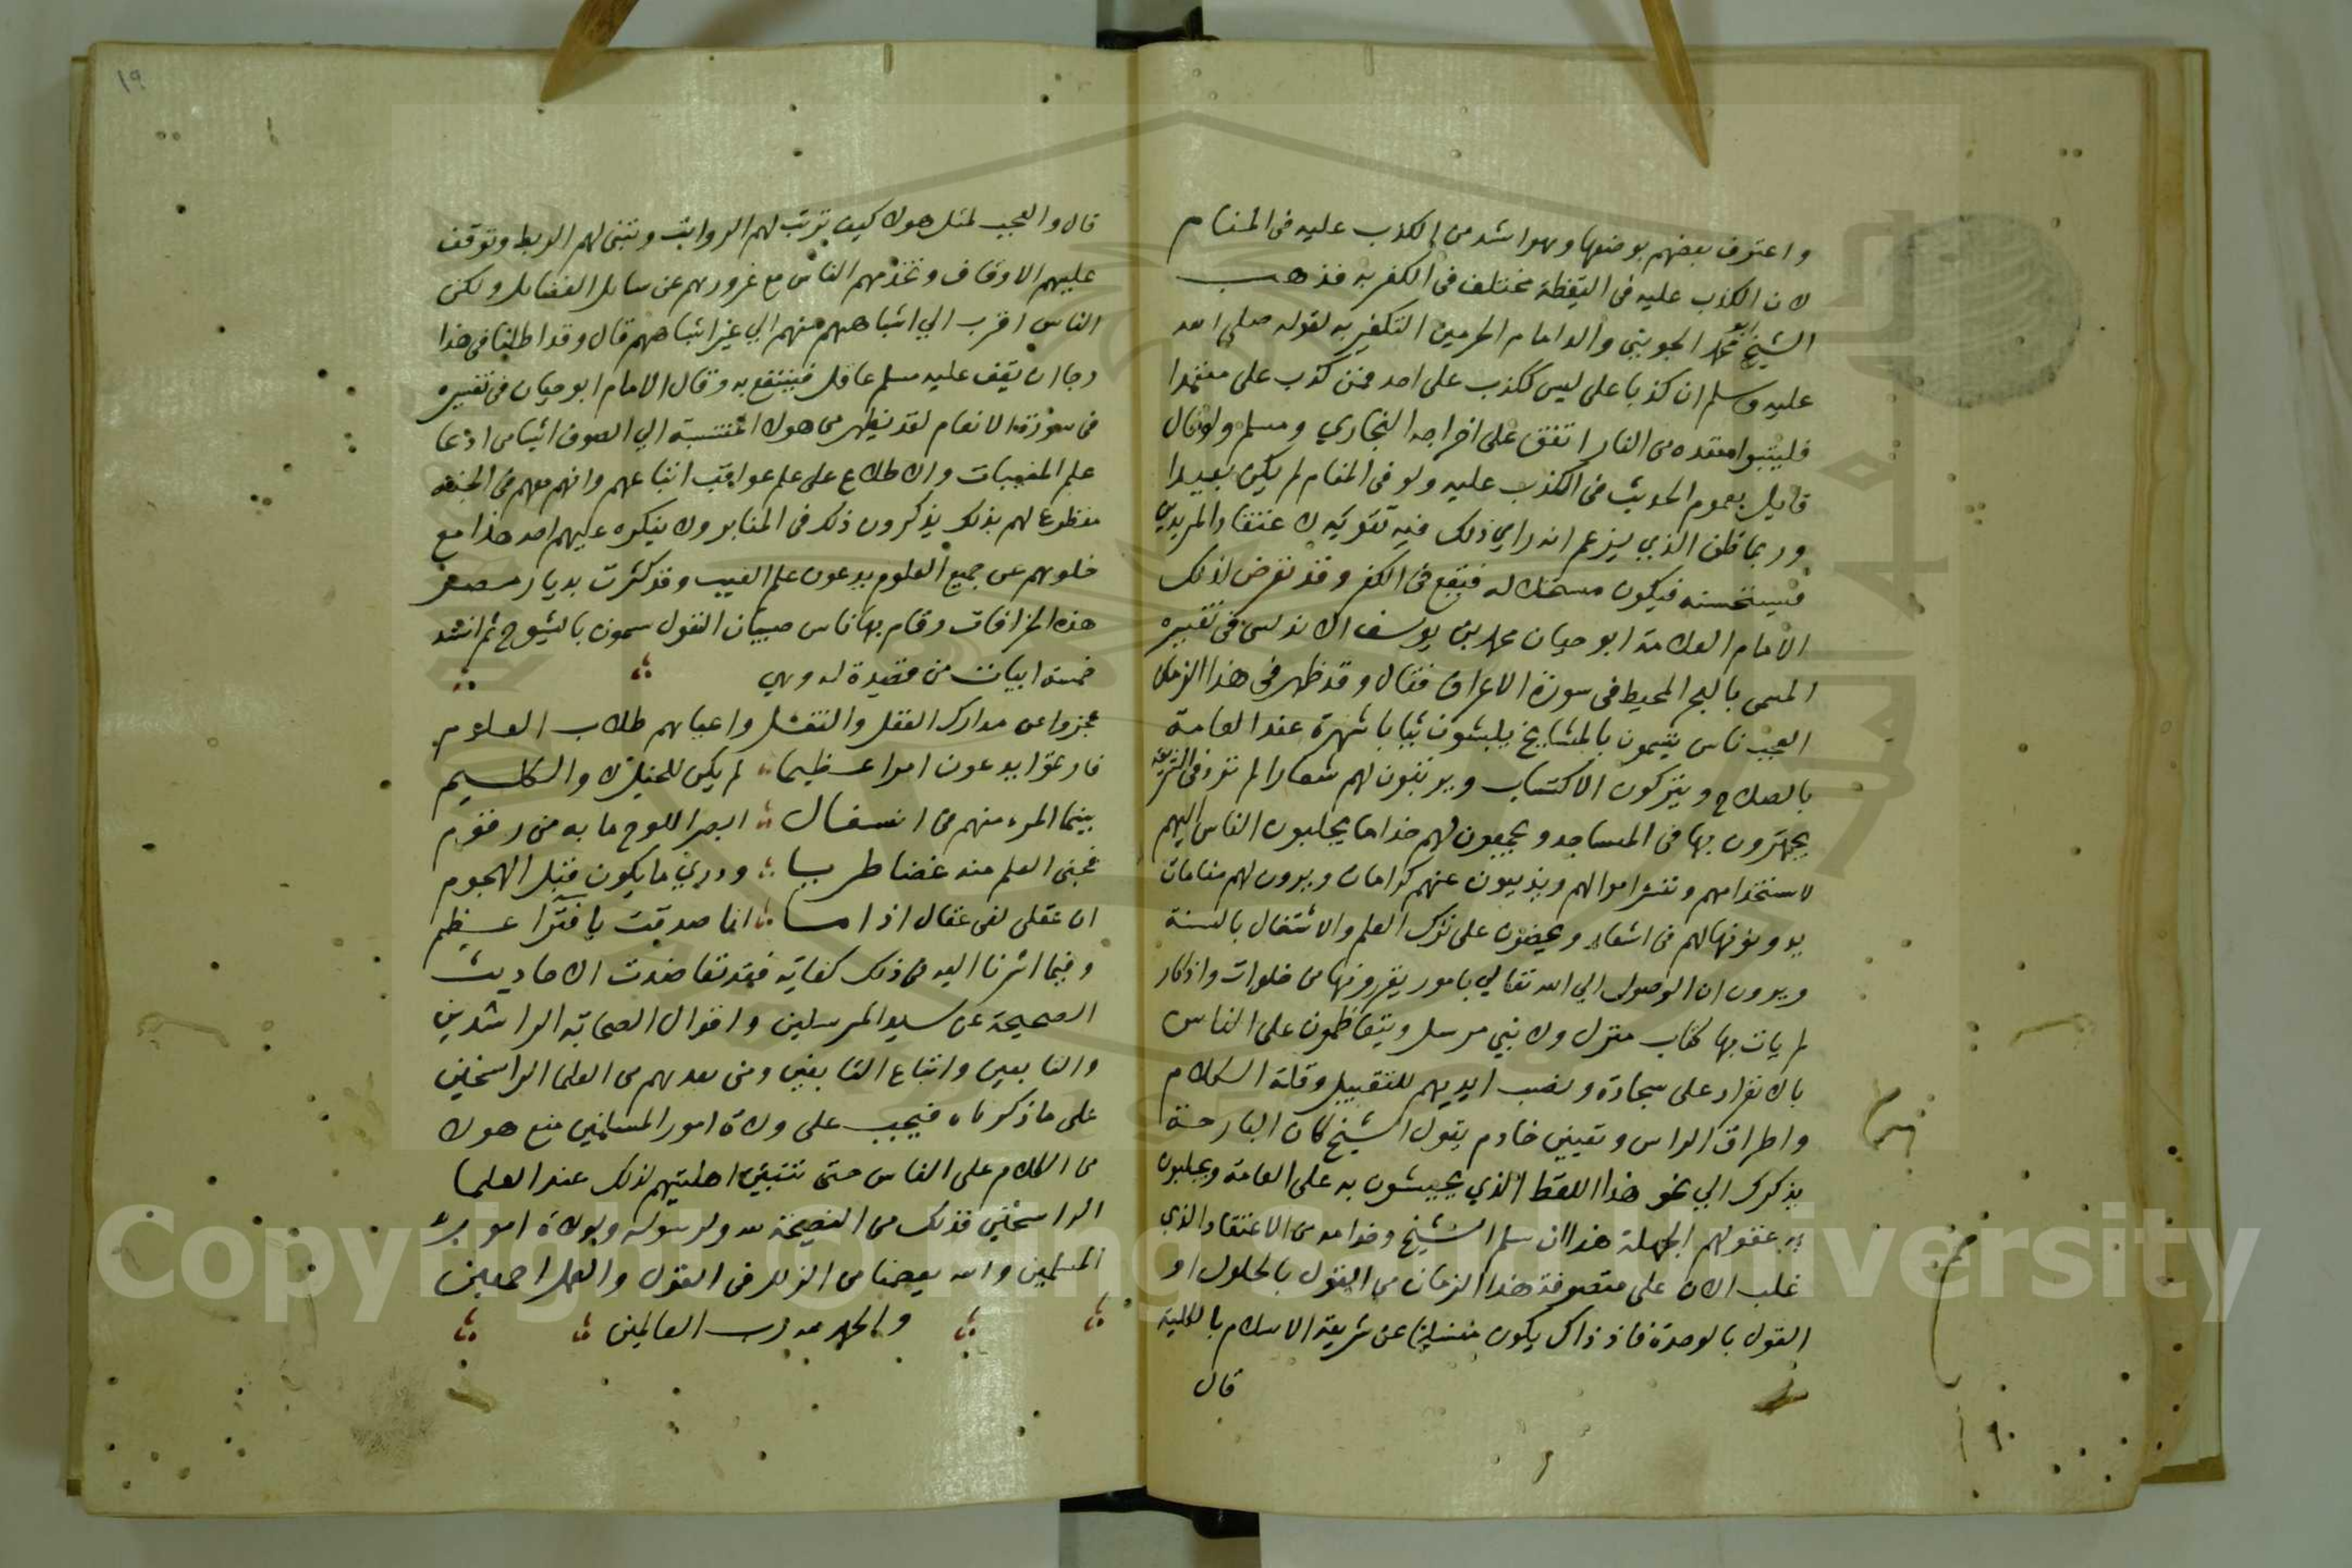 واعترف بعضهم بوضعها وهو اشد من الكذب عليه في المنام
لان الكذب عليه في اليقظة مختلف في الكفر به فذهب
الشيخ ابو محمد الجويني والد امام الحرمين التكفير به لقوله صلى الله
عليه وسلم ان كذبا علي ليس ككذب على احد فمن كذب علي متعمدا
فليتبوا مقعده من النار اتفق على اخراجه البخاري ومسلم ولو قال
قايل بعموم الحديث في الكذب عليه ولو في المنام لم يكن بعيدا
وربما ظن الذي يزعم انه راي ذلك فيه تقوية لاعتقاد المريدين
فيستحسنه فيكون مستحلا له فيقع في الكفر وقد تعرض لذلك
الامام العلامة ابو حيان محمد بن يوسف الاندلسي في تفسيره
المسمى بالبحر المحيط في سورة الاعراف فقال وقد ظهر في هذا الزمان
العجيب ناس يتسمون بالمشايخ يلبسون ثيابا شهرة عند العامة
بالصلاح ويتركون الاكتساب ويرتبون لهم شعارا لم ترد في الشريعة
يجهرون بها في المساجد ويجمعون لهم خداما يجلبون الناس اليهم
لاستخدامهم ونتش اموالهم ويذيعون عنهم كرامات ويرون لهم منامات
يدونونها لهم في اسفار ويحضون على ترك العلم والاشتغال بالسنة
ويرون ان الوصول الي الله تعالي بامور يقررونها من خلوات واذكار
لم يات بها كتاب منزل ولا نبي مرسل ويتعاظمون على الناس
بالانفراد على سجادة ونصب ايديهم للتقبيل وقلة الكلام
واطراق الراس وتعيين خادم يقول الشيخ كان البارحة
يذكرك الي نحو هذا اللفظ الذي يخبشون به على العامة ويجلبون
به عقول الجهلة هذا ان سلم الشيخ وخدامه من الاعتقاد الذي
غلب الان على متصوفة هذا الزمان من القول بالحلول او
القول بالوحدة فاذ ذاك يكون منسلخا عن شريعة الاسلام بالكلية
قال
٩٠
١٩
قال والعجب لمثل هولا كيف ترتب لهم الرواتب وتبنى لهم الربط وتوقف
عليهم الاوقاف وتخدمهم الناس مع غرورهم عن ساير الفضايل ولكن
الناس اقرب الي اشباههم منهم الي غير اشباههم قال وقد اطلنا في هذا
رجا ان يقف عليه مسلم عاقل فينتفع به وقال الامام ابو حيان في تفسيره
في سورة الانعام لقد يظهر من هولا المنتسبة الي الصوف اشيا من ادعا
علم المغيبات والاطلاع على علم عواقب اتباعهم وانهم معهم في الجنة
مقطوعا لهم بذلك يذكرون ذلك في المنابر ولا ينكره عليهم احد هذا مع
خلوهم عن جميع العلوم يدعون علم الغيب وقد كثرت بديار مصر
هذه الخرافات وقام بها ناس صبيان العقول يسمون بالشيوخ ثم انشد
خمسة ابيات من قصيدة له وهي
عجزوا عن مدارك العقل والنقل واعياهم طلاب العلوم
فارتقوا يدعون امرا عظيما لم يكن للخليل لا والكليم
بينما المرء منهم في انسفال ابصر اللوح ما به من رقوم
فجنى العلم منه غضا طريا ودري ما يكون قبل الهجوم
ان عقلي لفي عقال اذا ما انا صدقت بافترا عظيم
وفيما اشرنا اليه من ذلك كفاية فقد تعاضدت الاحاديث
الصحيحة عن سيد المرسلين واقوال الصحابة الراشدين
والتابعين واتباع التابعين ومن بعدهم من العلما الراسخين
على ما ذكرناه فيجب على ولاة امور المسلمين منع هولا
من الكلام على الناس حتى تتبين اهليتهم لذلك عند العلما
الراسخين فذلك من النصيحة لله ولرسوله ولولاة امور
المسلمين والله يعصمنا من الزلل في القول والعمل اجمعين
والحمد لله رب العالمين
Copyright © King Saud University